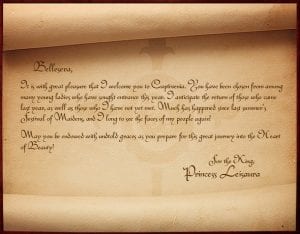 Bellesera,
It is with great pleasure that I welcome you to Castaveria. You have been chosen from among
many young ladies who have sought entrance this year. I anticipate the return of those who came
last year, as well as those who I have not yet met. Much has happened since last summer's
Festival of Maidens, and I long to see the faces of my people again!
May you be endowed with untold graces as you prepare for this great journey into the Heart
of Beauty!
For the King,
Princess Leisaura